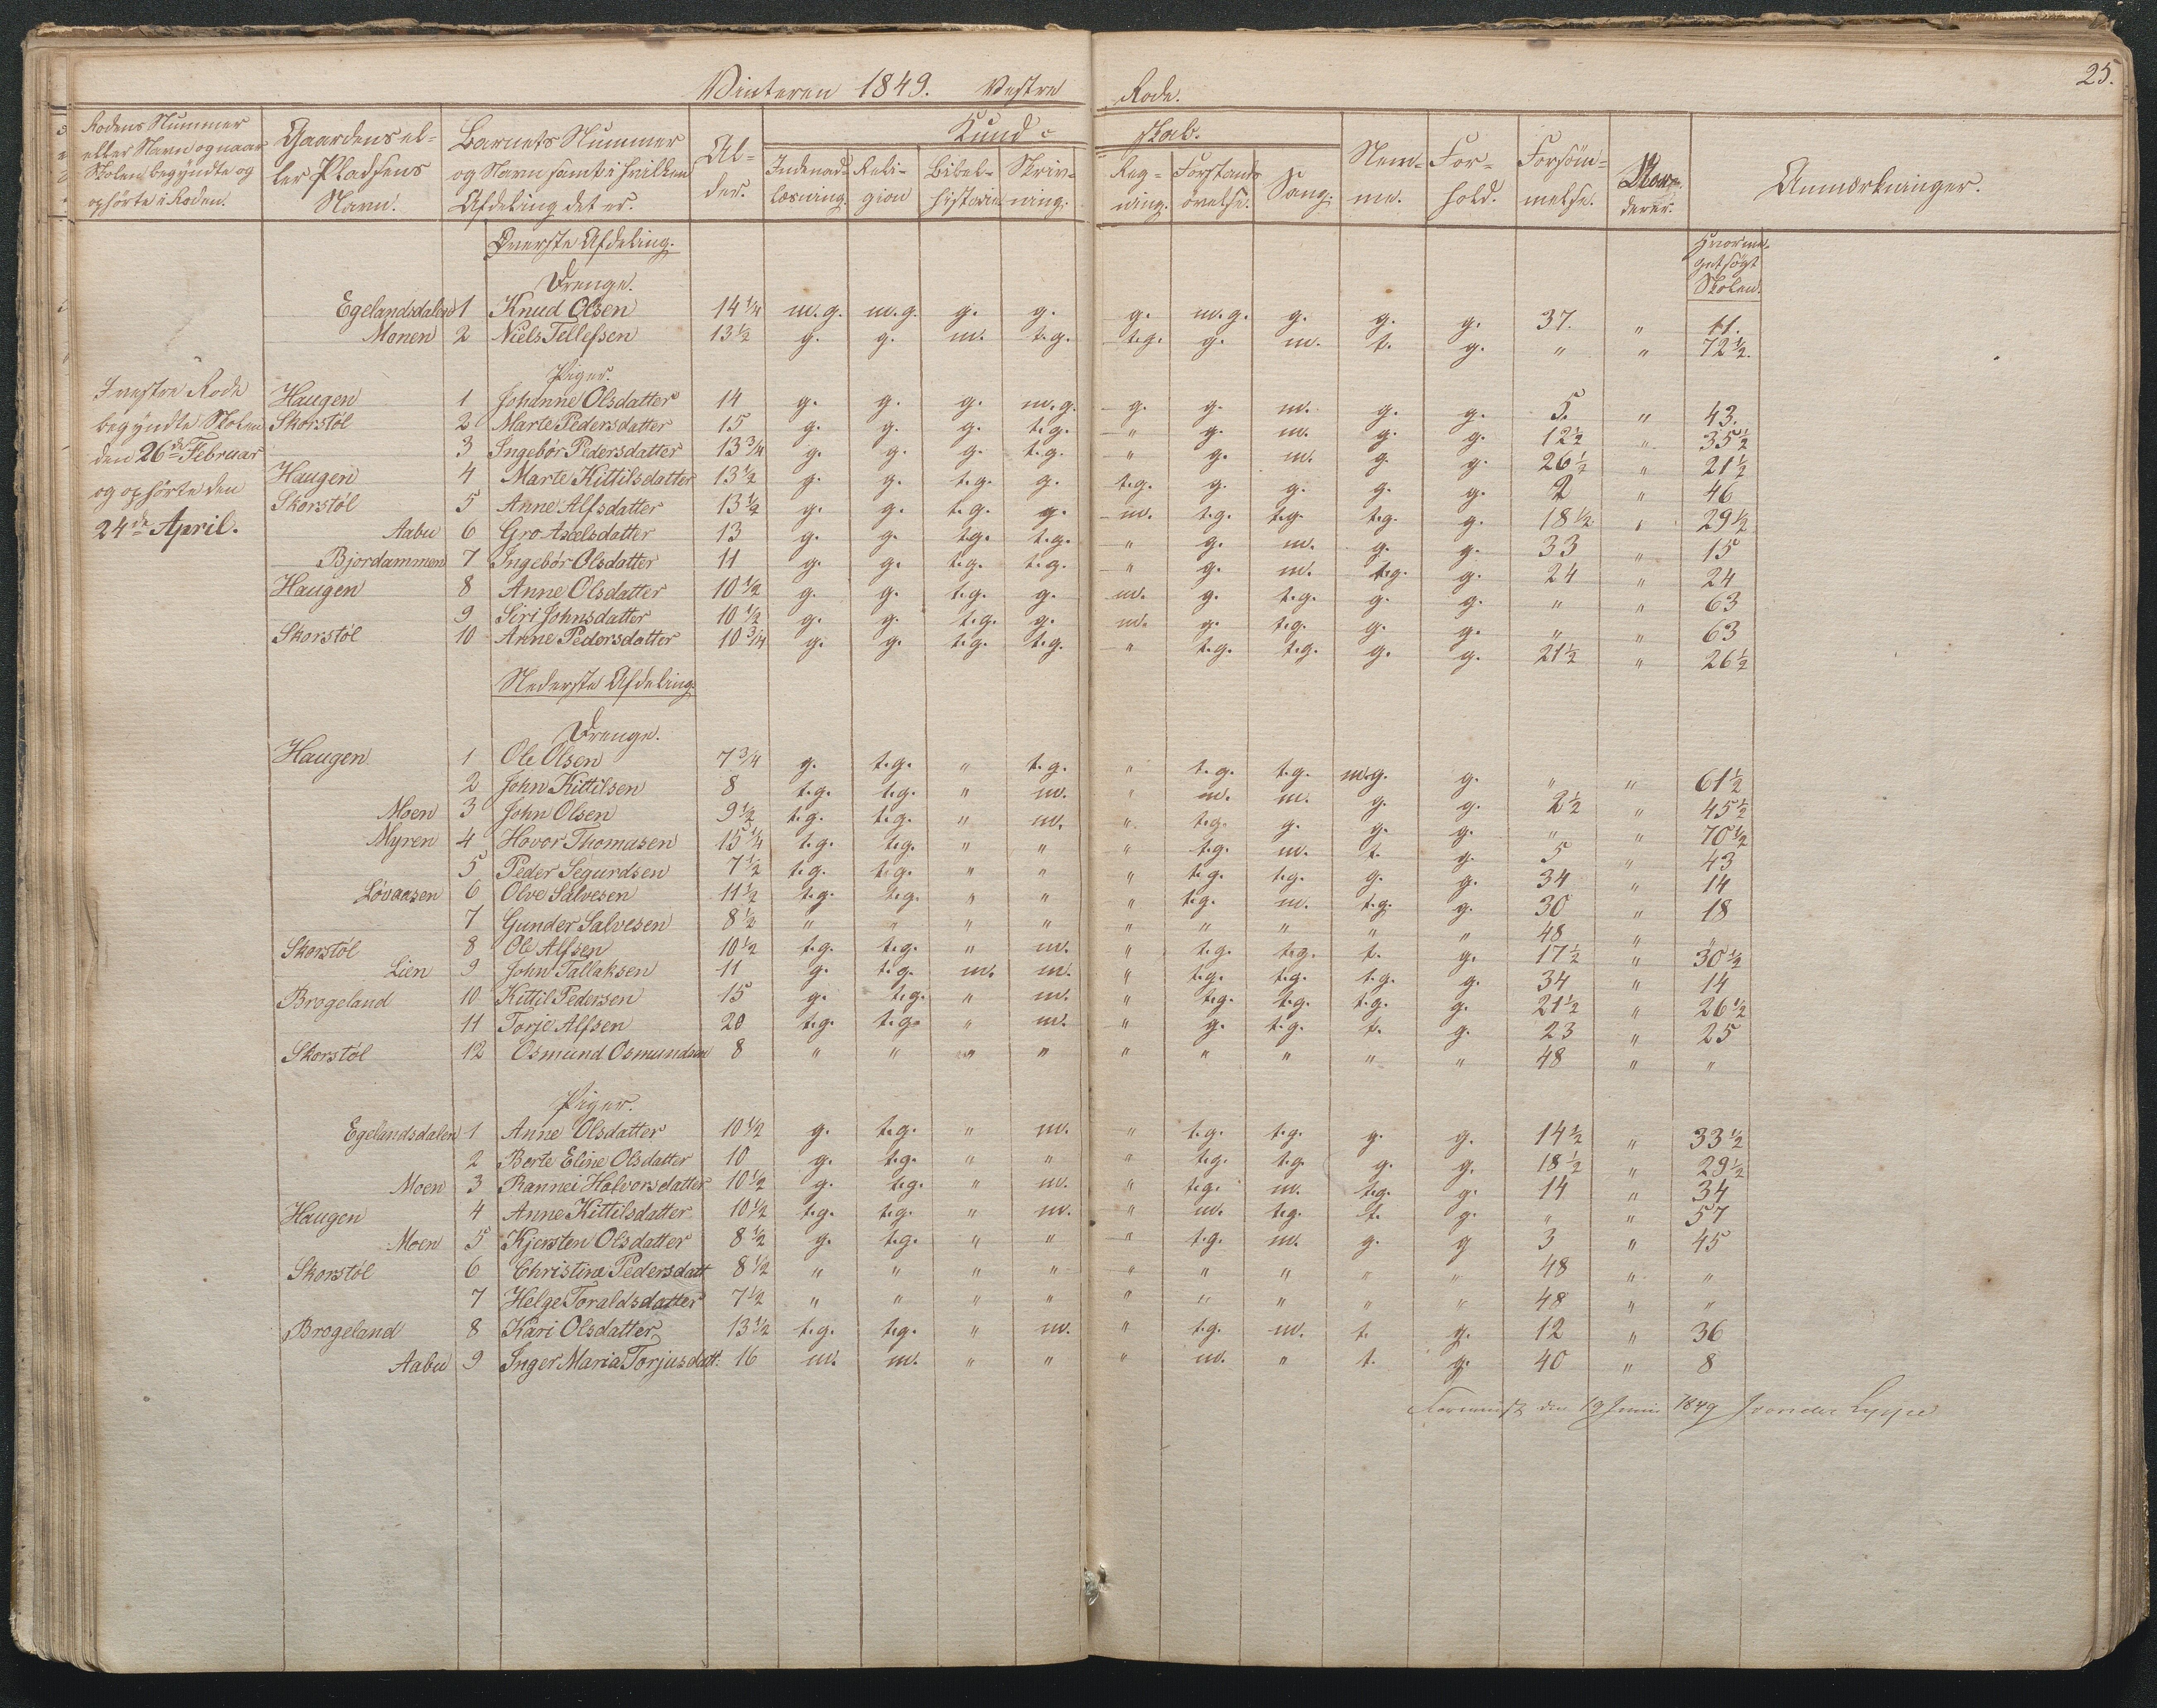 25.
Vinteren 1849. Vestre Rode.
Rodens Nummer eller Navn og naar Skolen begyndte og ophørte i Roden. | Gaardens eller Pladsens Navn. | Barnets Nummer og Navn samt i hvilken Afdeling det er. | Alder. | Kundskab. | Nemme. | Forhold. | Forsømmelse. | Anmærkninger.
Indenadlæsning. | Religion | Bibelhistorie | Skrivning. | Regning. | Forstandsøvelse. | Sang.
Øverste Afdeling.
Hvor meget søgt Skolen.
Drenge.
Egelandsdalen 1 Knud Olsen 14 1/4 m.g. m.g. g. g. g. m.g. g. g. g. 37. " 11.
Monen 2 Niels Tellefsen 13 1/2 g. g. m. t.g. t.g. g. m. t. g. " " 72 1/2.
Piger.
I vestre Rode begyndte Skolen den 26de Februar og ophørte den 24de April.
Haugen 1 Johanne Olsdatter 14 g. g. g. m.g. g. g. m. g. g. 5. " 43.
Skorstöl 2 Marte Pedersdatter 15 g. g. g. t.g. " g. m. g. g. 12 1/2 " 35 1/2
3 Ingebör Pedersdatter 13 3/4 g. g. g. t.g. " g. m. g. g. 26 1/2 " 21 1/2
Haugen 4 Marte Kittilsdatter 13 1/2 g. g. t.g. g. t.g. g. g. g. g. 2 " 46
Skorstöl 5 Anne Alfsdatter 13 1/2 g. g. t.g. g. m. t.g. t.g. t.g. g. 18 1/2 " 29 1/2
Aabu 6 Gro Axelsdatter 13 g. g. t.g. t.g. " g. m. g. g. 33 " 15
Bjordammen 7 Ingebör Olsdatter 11 g. g. t.g. t.g. " g. m. t.g. g. 24 " 24
Haugen 8 Anne Olsdatter 10 1/2 g. g. t.g. g. m. g. t.g. g. g. " " 63
9 Siri Johnsdatter 10 1/2 g. g. t.g. g. m. g. t.g. g. g. " " 63
Skorstöl 10 Anne Pedersdatter 10 3/4 g. g. t.g. t.g. " t.g. t.g. g. g. 21 1/2 " 26 1/2
Nederste Afdeling.
Drenge.
Haugen 1 Ole Olsen 7 3/4 g. t.g. " t.g. " t.g. t.g. m.g. g. " " 61 1/2
2 John Kittilsen 8 t.g. t.g. " m. " m. m. g. g. 2 1/2 " 45 1/2
Moen 3 John Olsen 9 1/2 t.g. t.g. " m. " t.g. g. g. g. " " 70 1/2
Myren 4 Hovor Thomasen 15 1/4 t.g. t.g. " " " t.g. m. t. g. 5 " 43
5 Peder Segurdsen 7 1/2 t.g. t.g. " " " t.g. t.g. g. g. 34 " 14
Lövaasen 6 Olve Salvesen 11 1/2 t.g. t.g. " " " t.g. m. t.g. g. 30 " 18
7 Gunder Salvesen 8 1/2 " " " " " " " " " 48 " "
Skorstöl 8 Ole Alfsen 10 1/2 t.g. t.g. " m. " t.g. t.g. t. g. 17 1/2 " 30 1/2
Lien 9 John Tallaksen 11 g. t.g. m. m. " t.g. t.g. t.g. g. 34 " 14
Brogeland 10 Kittil Pedersen 15 g. t.g. " m. " t.g. t.g. t.g. g. 21 1/2 " 26 1/2
11 Torje Alfsen 20 t.g. t.g. " m. " g. t.g. t. g. 23 " 25
Skorstöl 12 Osmund Osmundsen 8 " " " " " " " " " 48 " "
Piger.
Egelandsdalen 1 Anne Olsdatter 10 1/2 g. t.g. " m. " t.g. t.g. g. g. 14 1/2 " 33 1/2
2 Berte Eline Olsdatter 10 g. t.g. " " " t.g. t.g. g. g. 18 1/2 " 29 1/2
Moen 3 Rannei Halvorsdatter 10 1/2 g. t.g. " m. " t.g. m. t.g. g. 14 " 34
Haugen 4 Anne Kittilsdatter 10 1/2 t.g. t.g. " m. " m. t.g. t. g. " " 57
Moen 5 Kjersten Olsdatter 8 1/2 g. t.g. " " " t.g. m. g. g 3 " 45
Skorstöl 6 Christine Pedersdatt 8 1/2 " " " " " " " " " 48 " "
7 Helge Toraldsdatter 7 1/2 " " " " " " " " " 48 " "
Brogeland 8 Kari Olsdatter 13 1/2 t.g. t.g. " m. " t.g. m. t. g. 12 " 36
Aabu 9 Inger Maria Torjusdatt. 16 m. m. " " " m. " t. g. 40 " 8
den 19 Junii 1849